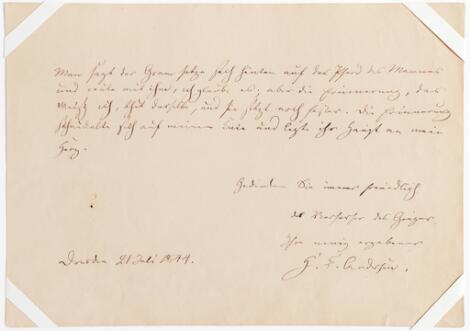 Man sagt der Gram setze sich hinten auf das Pferd des Mannes
und reite mit ihm, ich glaube es; aber die Erinnerung, das
weiß ich, thut dasselbe, und sie sitzt noch fester. Die Erinnerung
sich auf meinen Knie und legte ihr Haupt an mein
Herz.
Gedenken Sie immer freundlich
des Verfasser des Geigers
Ihr innig ergebener
H. C. Andersen.
Dresden 21 Juli 1844.